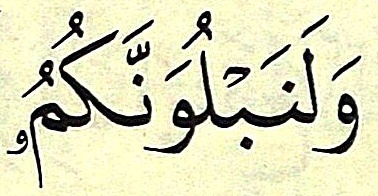 وَلَنَبْلُوَنَّكُمُۥ